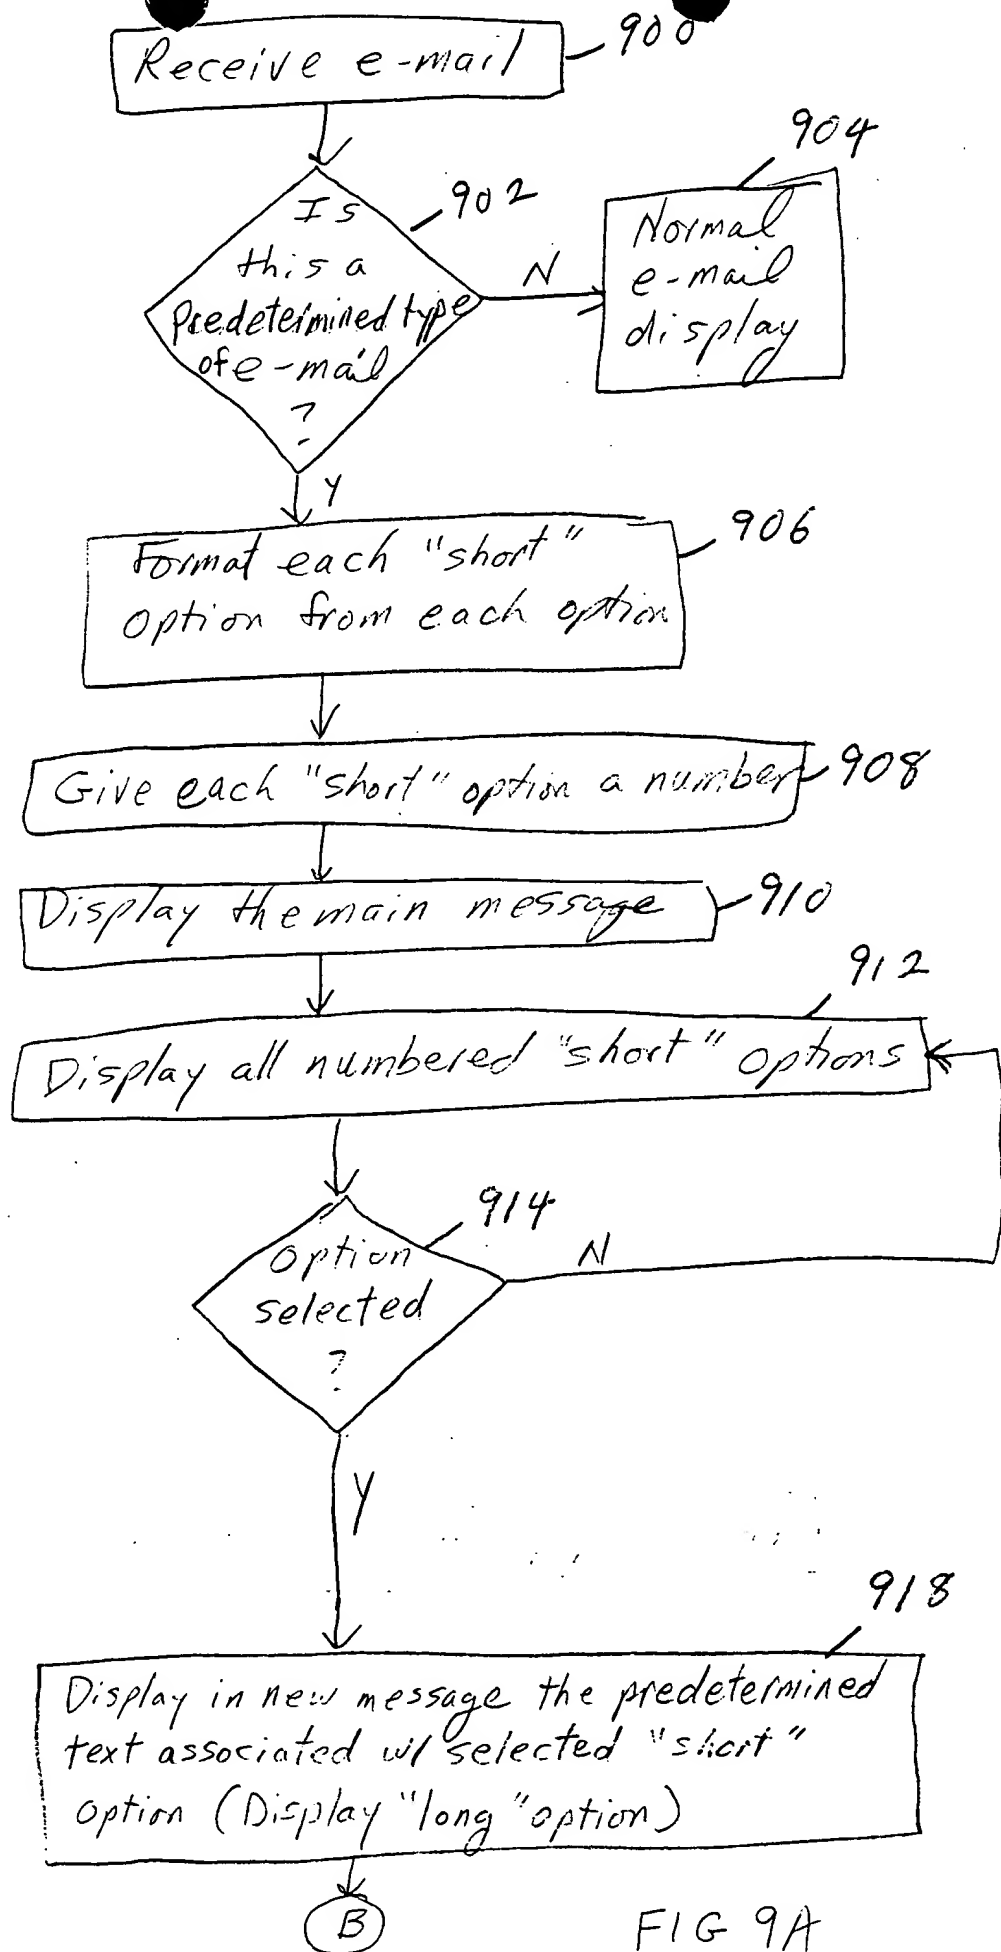 Receive e-mail
900
Is
this a
predetermined type
of e-mail
?
902
N
904
Normal
e-mail
display
Y
906
Format each "short"
option from each option
Give each "short" option a number
908
Display the main message
910
912
Display all numbered "short" options
914
Option
selected
?
N
Y
918
Display in new message the predetermined
text associated w/ selected "short"
option (Display "long" option)
B
FIG 9A